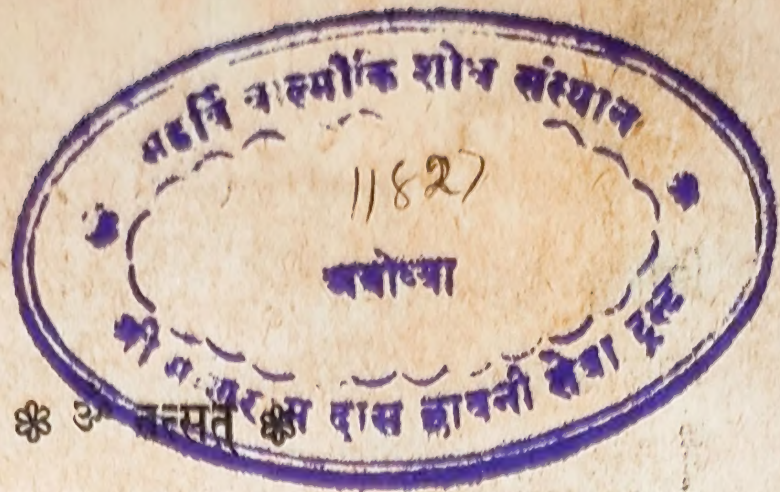 महर्षि वाल्मीकि शोध संस्थान
11827
अयोध्या
श्री मणिराम दास छावनी सेवा ट्रस्ट
❀ ॐ तत्सत् ❀